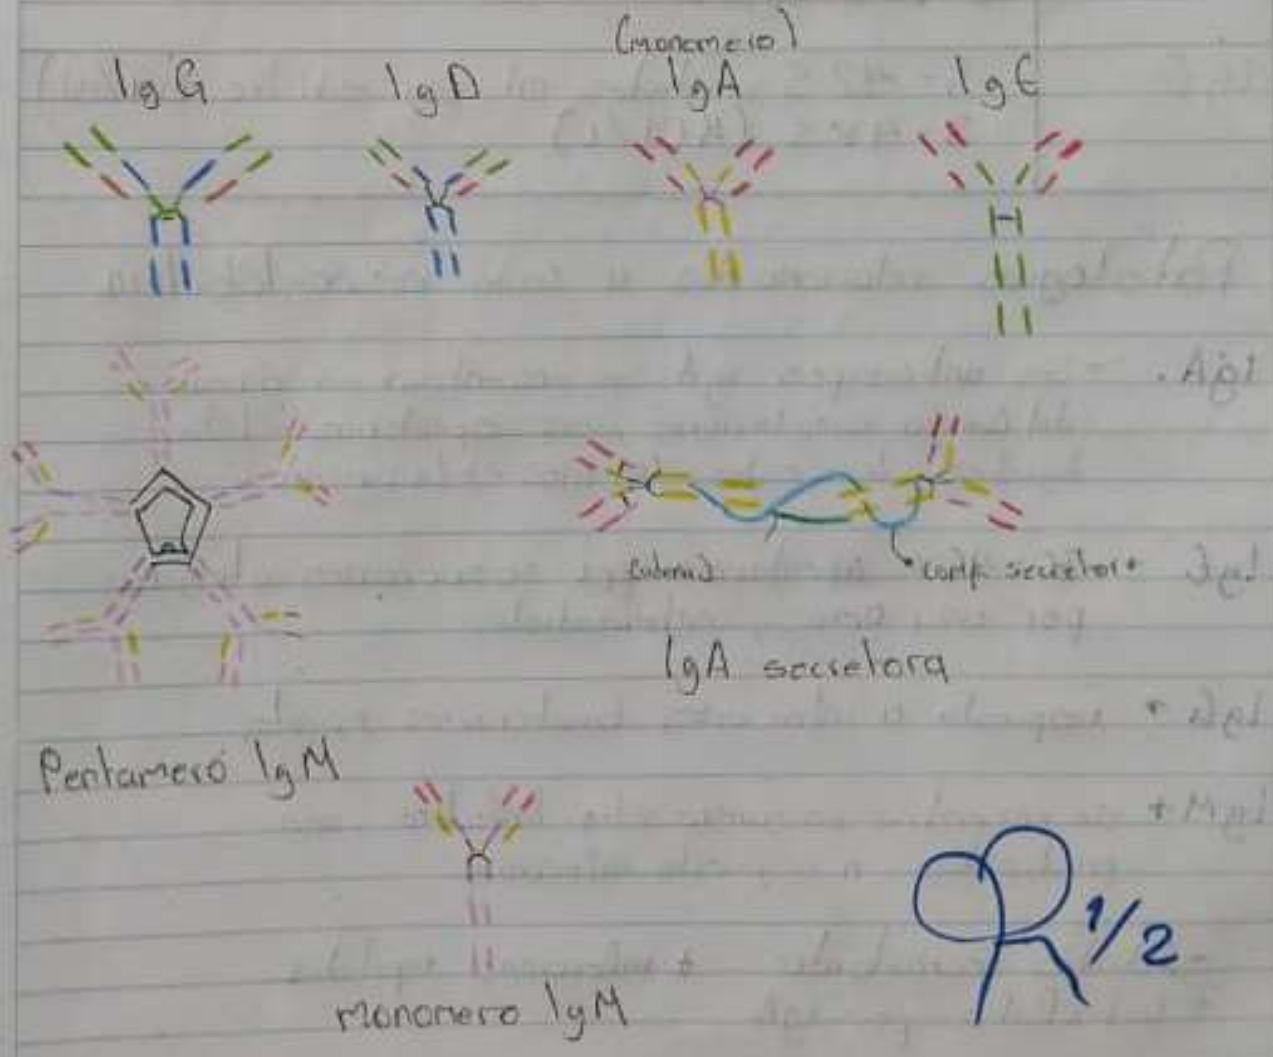 (monomero)
IgG IgD IgA IgE
Cadena J "comp. secretor"
IgA secretora
Pentamero IgM
monomero IgM
R 1/2